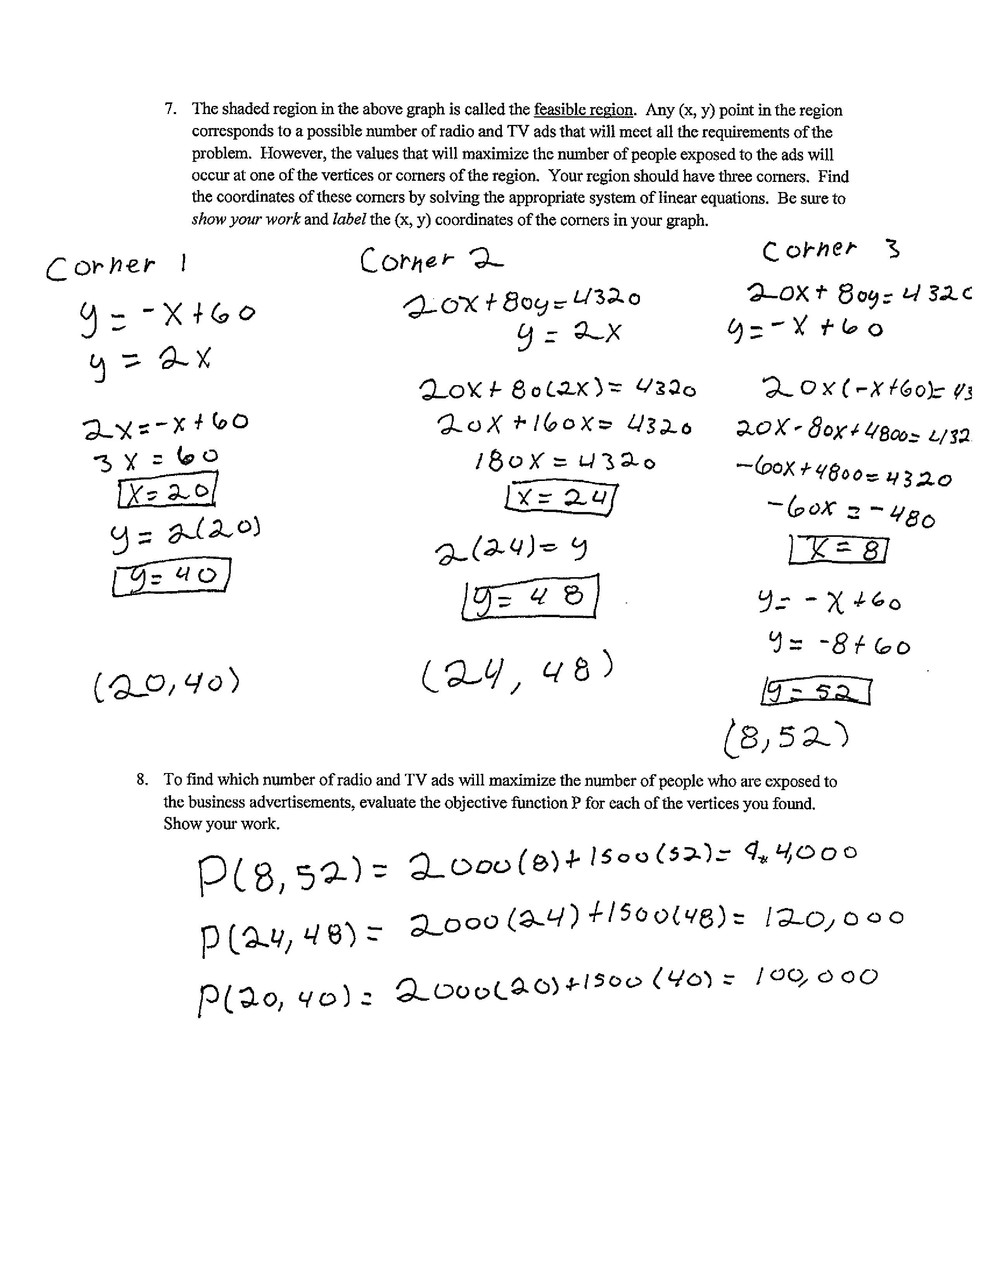 7. The shaded region in the above graph is called the feasible region. Any (x, y) point in the region
corresponds to a possible number of radio and TV ads that will meet all the requirements of the
problem. However, the values that will maximize the number of people exposed to the ads will
occur at one of the vertices or corners of the region. Your region should have three corners. Find
the coordinates of these corners by solving the appropriate system of linear equations. Be sure to
show your work and label the (x, y) coordinates of the corners in your graph.
Corner 1
y = -x+60
y = 2x
2x=-x+60
3x=60
x=20
y= 2(20)
y=40
(20,40)
Corner 2
20x+80y=4320
y = 2x
20x+80(2x)=4320
20x+160x=4320
180x=4320
x=24
2(24)=y
y=48
(24, 48)
Corner 3
20x+80y=4320
y=-x+60
20x(-x+60)=43
20x-80x+4800=432
-60x+4800=4320
-60x=-480
x=8
y=-x+60
y=-8+60
y=52
(8,52)
8. To find which number of radio and TV ads will maximize the number of people who are exposed to
the business advertisements, evaluate the objective function P for each of the vertices you found.
Show your work.
P(8,52)= 2000(8)+1500(52)= 94,000
P(24,48)= 2000(24)+1500(48)= 120,000
P(20,40)= 2000(20)+1500(40)= 100,000